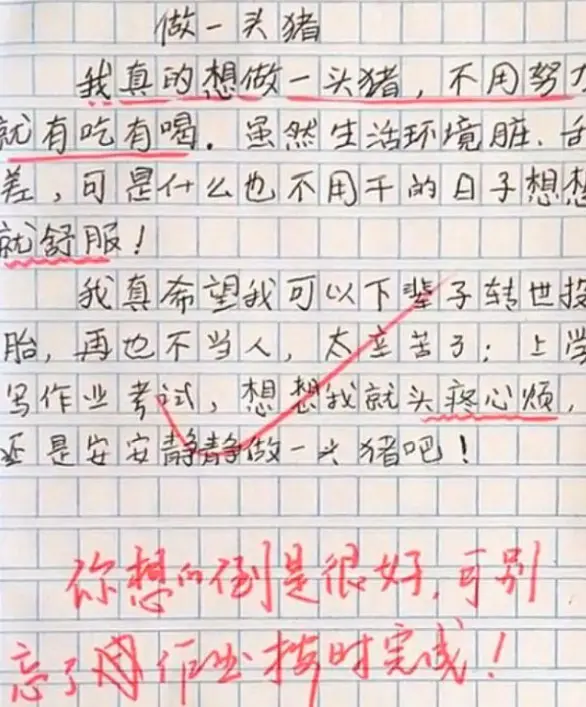 做一头猪
我真的想做一头猪，不用努力
就有吃有喝．虽然生活环境脏、
差，可是什么也不用干的日子想想
就舒服！
我真希望我可以下辈子转世投
胎，再也不当人，太辛苦了；上学
写作业考试，想想我就头疼心烦，
还是安安静静做一头猪吧！
你想的倒是很好，可别
忘了作业按时完成！